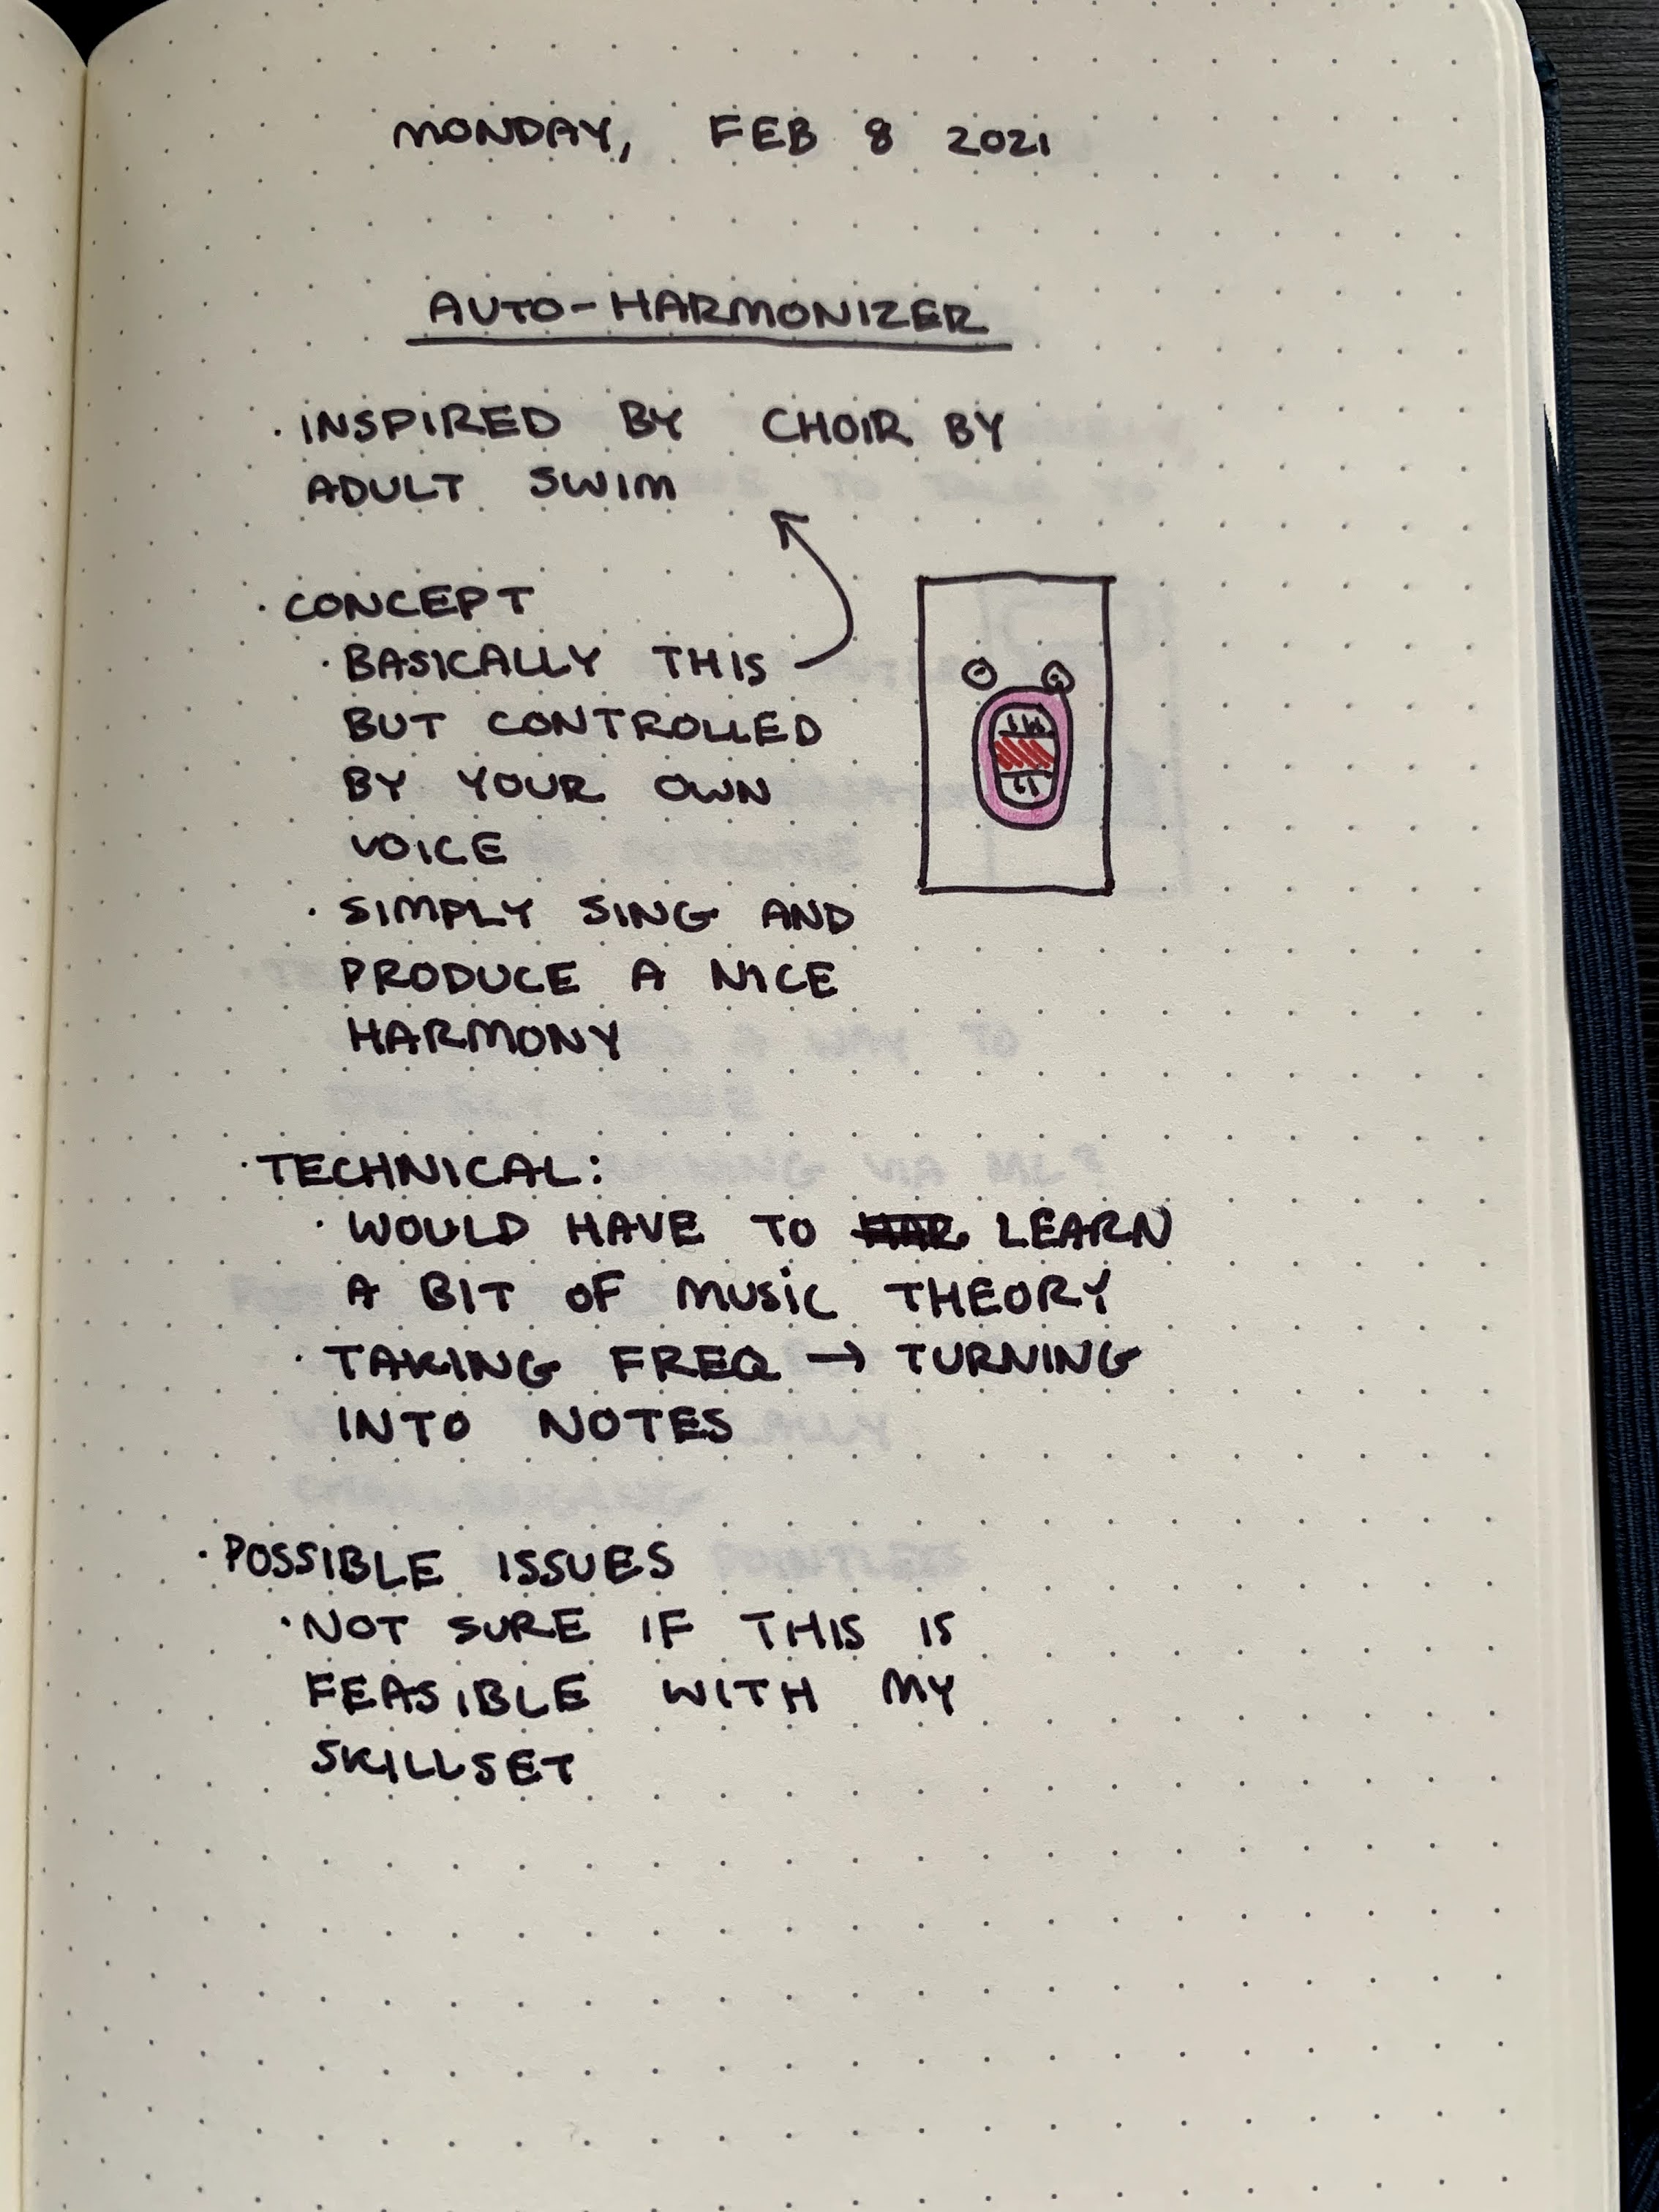 MONDAY, FEB 8 2021
AUTO-HARMONIZER
· INSPIRED BY CHOIR BY
ADULT SWIM
· CONCEPT
· BASICALLY THIS
BUT CONTROLLED
BY YOUR OWN
VOICE
· SIMPLY SING AND
PRODUCE A NICE
HARMONY
· TECHNICAL:
· WOULD HAVE TO LEARN
A BIT OF MUSIC THEORY
· TAKING FREQ → TURNING
INTO NOTES
· POSSIBLE ISSUES
· NOT SURE IF THIS IS
FEASIBLE WITH MY
SKILLSET